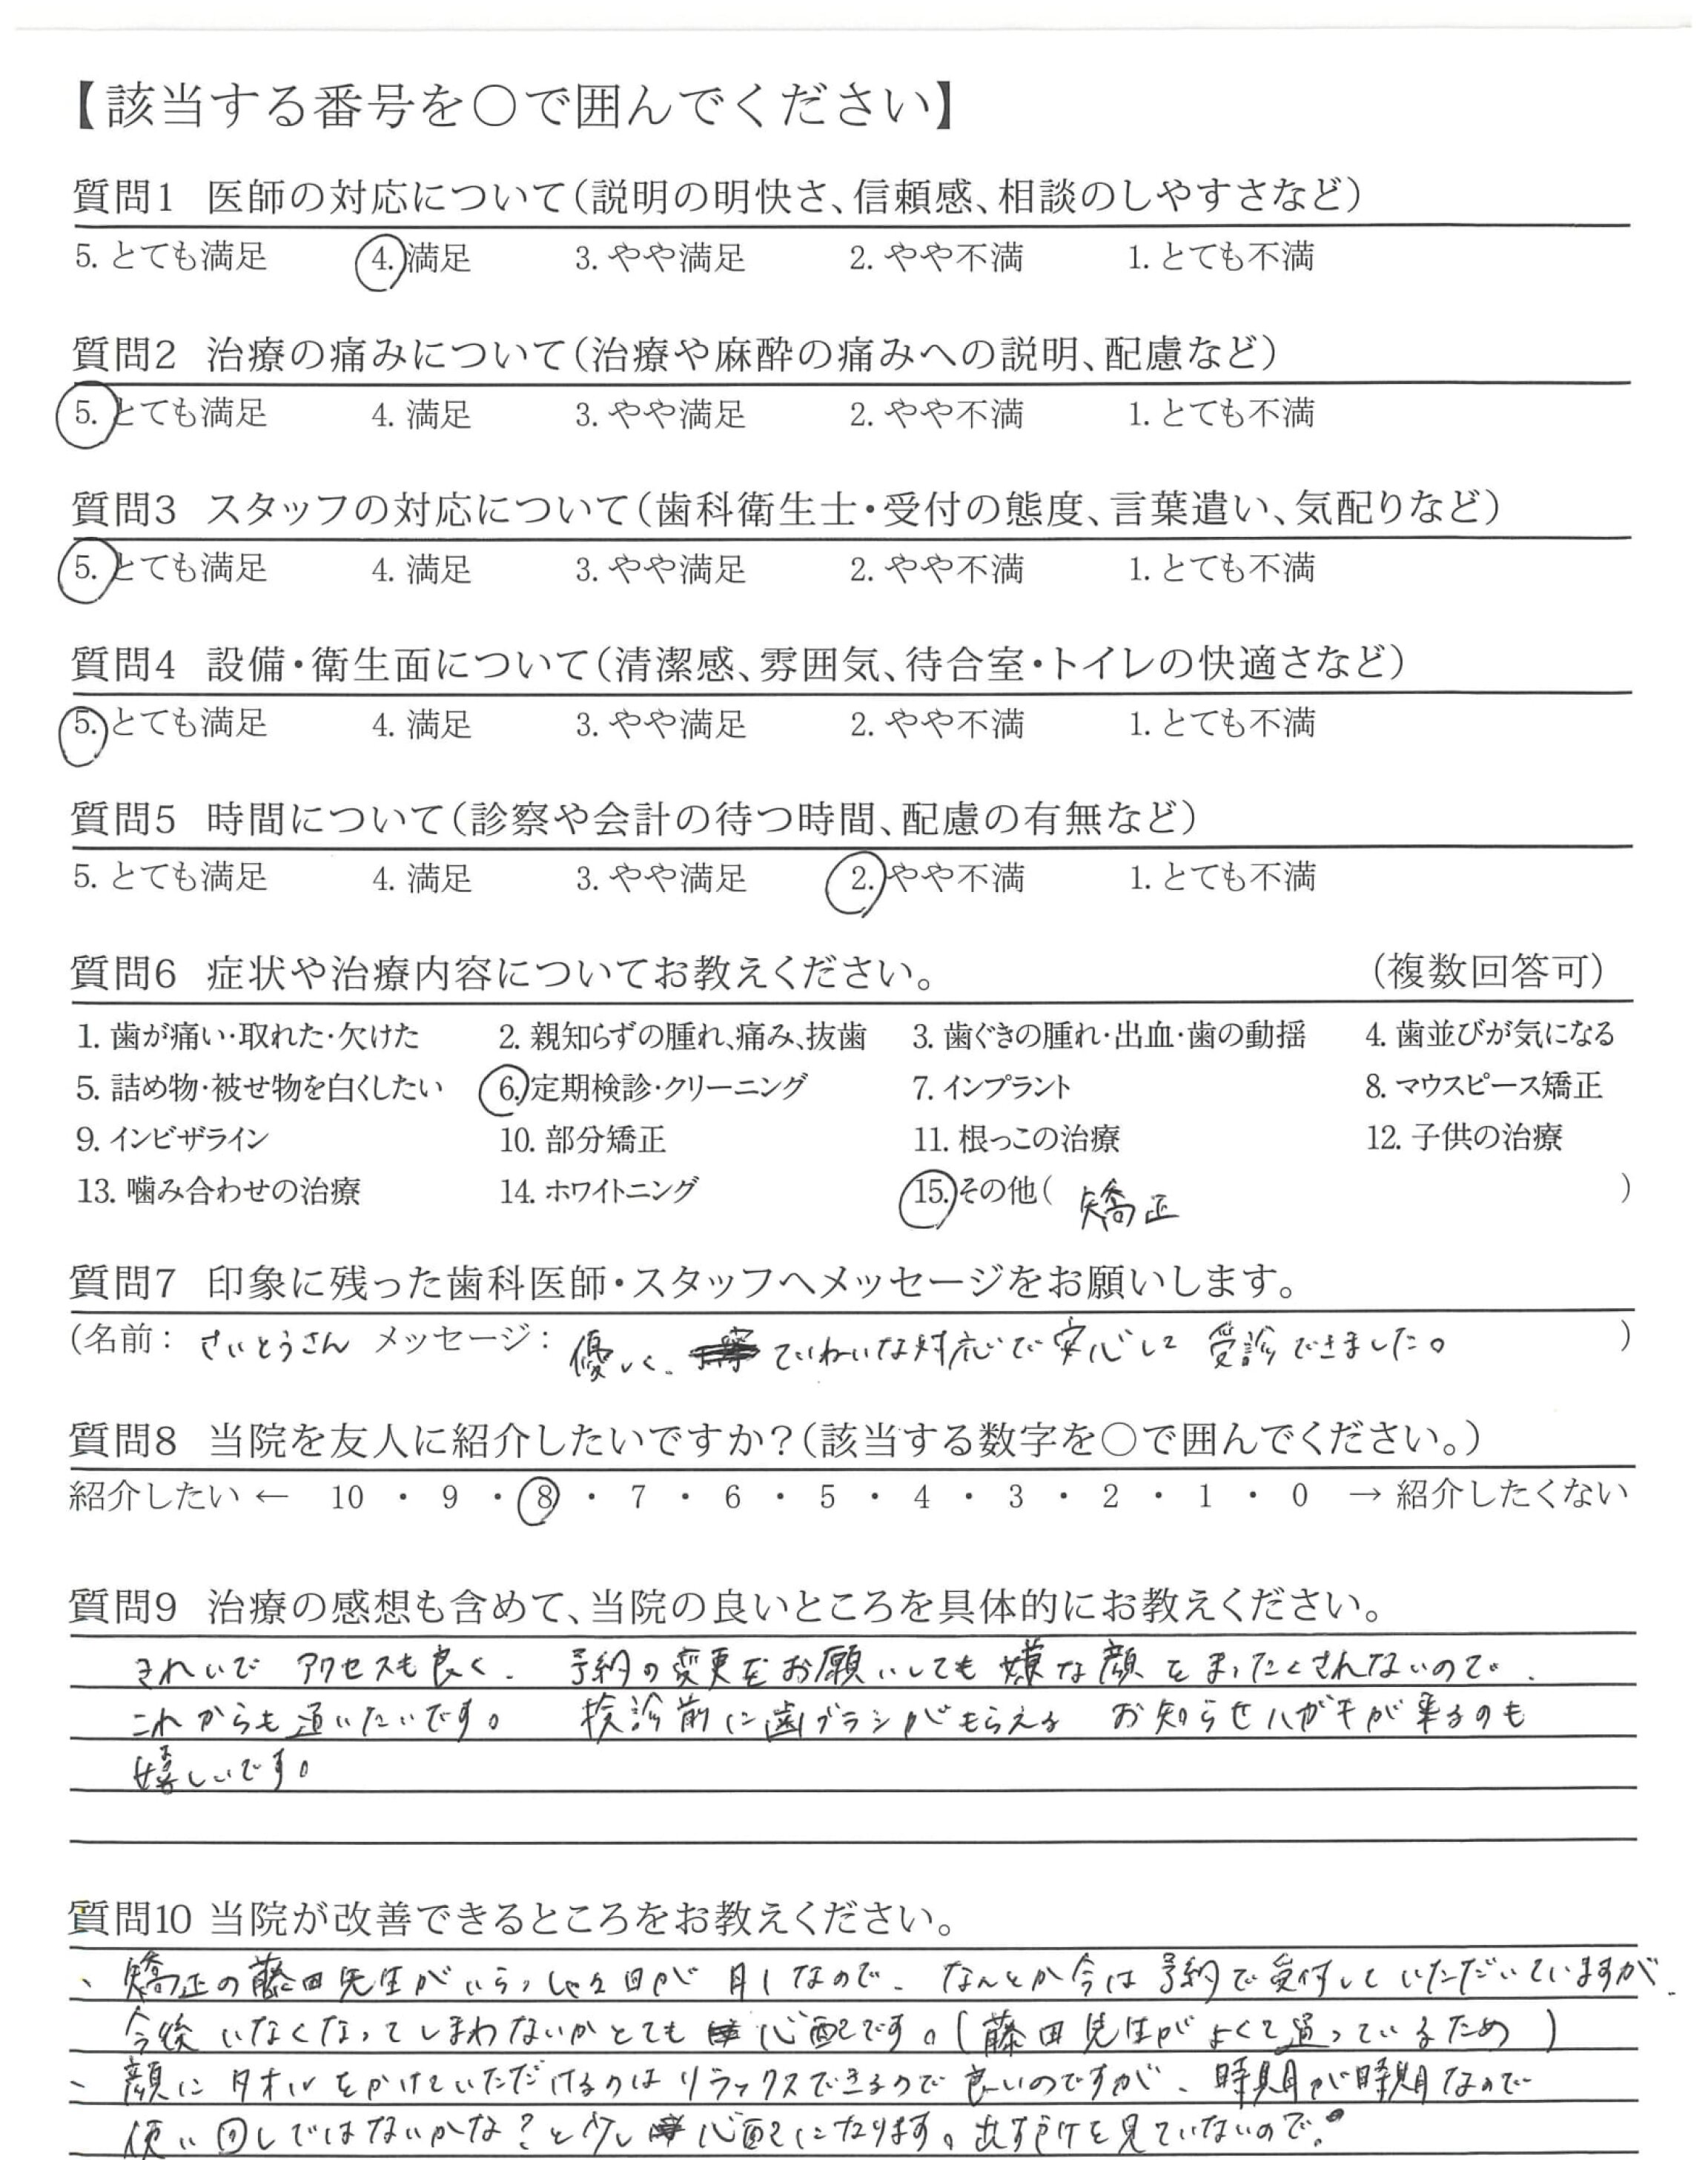 【該当する番号を○で囲んでください】
質問1 医師の対応について(説明の明快さ、信頼感、相談のしやすさなど)
5. とても満足 4. 満足 3. やや満足 2. やや不満 1. とても不満
質問2 治療の痛みについて(治療や麻酔の痛みへの説明、配慮など)
5. とても満足 4. 満足 3. やや満足 2. やや不満 1. とても不満
質問3 スタッフの対応について(歯科衛生士・受付の態度、言葉遣い、気配りなど)
5. とても満足 4. 満足 3. やや満足 2. やや不満 1. とても不満
質問4 設備・衛生面について(清潔感、雰囲気、待合室・トイレの快適さなど)
5. とても満足 4. 満足 3. やや満足 2. やや不満 1. とても不満
質問5 時間について(診察や会計の待つ時間、配慮の有無など)
5. とても満足 4. 満足 3. やや満足 2. やや不満 1. とても不満
質問6 症状や治療内容についてお教えください。 (複数回答可)
1. 歯が痛い・取れた・欠けた 2. 親知らずの腫れ、痛み、抜歯 3. 歯ぐきの腫れ・出血・歯の動揺 4. 歯並びが気になる
5. 詰め物・被せ物を白くしたい 6. 定期検診・クリーニング 7. インプラント 8. マウスピース矯正
9. インビザライン 10. 部分矯正 11. 根っこの治療 12. 子供の治療
13. 噛み合わせの治療 14. ホワイトニング 15. その他( 矯正 )
質問7 印象に残った歯科医師・スタッフへメッセージをお願いします。
(名前: さいとうさん メッセージ: 優しく、ていねいな対応で安心して受診できました。 )
質問8 当院を友人に紹介したいですか?(該当する数字を○で囲んでください。)
紹介したい ← 10 ・ 9 ・ 8 ・ 7 ・ 6 ・ 5 ・ 4 ・ 3 ・ 2 ・ 1 ・ 0 → 紹介したくない
質問9 治療の感想も含めて、当院の良いところを具体的にお教えください。
きれいで アクセスも良く、 予約の変更をお願いしても嫌な顔をまったくされないので、
これからも通いたいです。 検診前に歯ブラシがもらえる お知らせハガキが来るのも
嬉しいです。
質問10 当院が改善できるところをお教えください。
、矯正の藤田先生がいらっしゃる日が月1なので、なんとか今は予約で受付していただいていますが、
今後いなくなってしまわないかとても心配です。(藤田先生がよくて通っているため)
、顔にタオルをかけていただけるのはリラックスできるので良いのですが、時期が時期なので
使い回しではないかな?と少し心配になります。出す所を見ていないので。